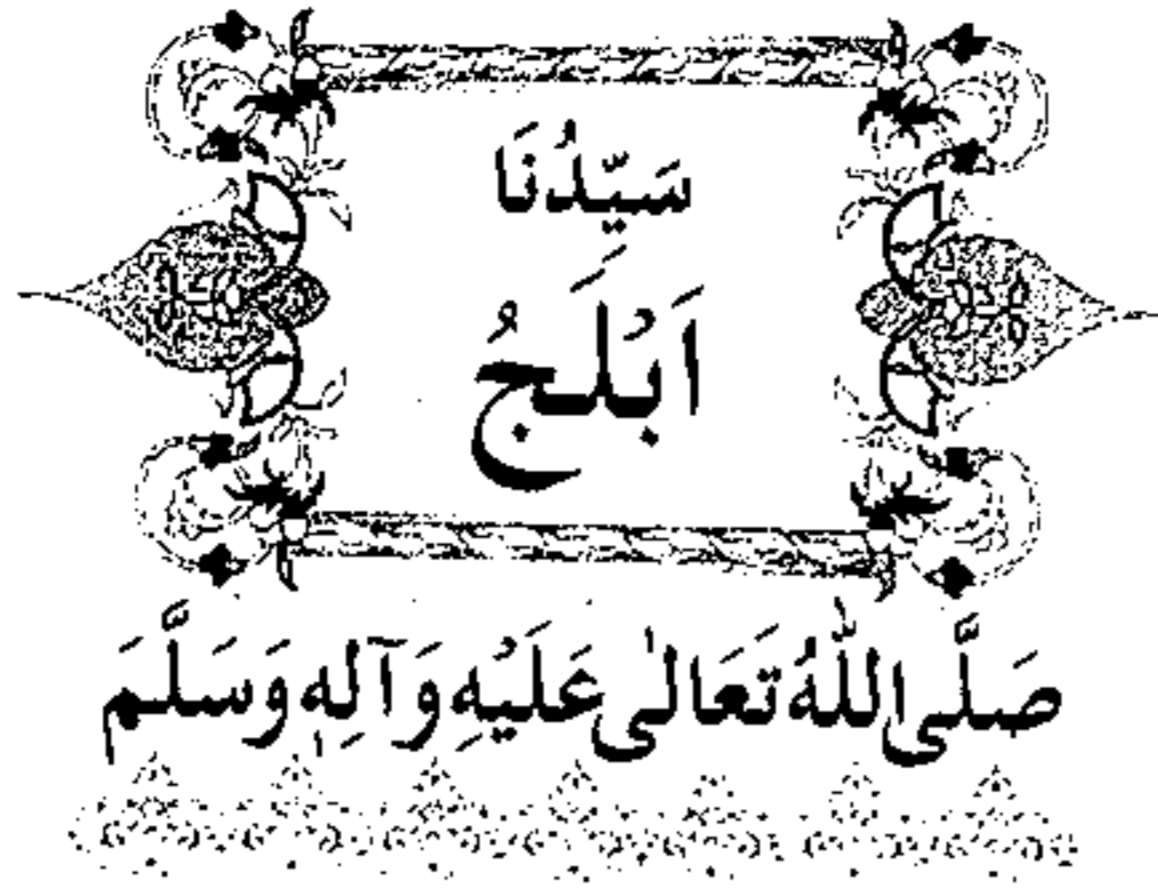 سَيِّدُنَا
اَبْلَجُ
صَلَّى اللّٰهُ تَعَالٰى عَلَيْهِ وَآلِهٖ وَسَلَّمَ